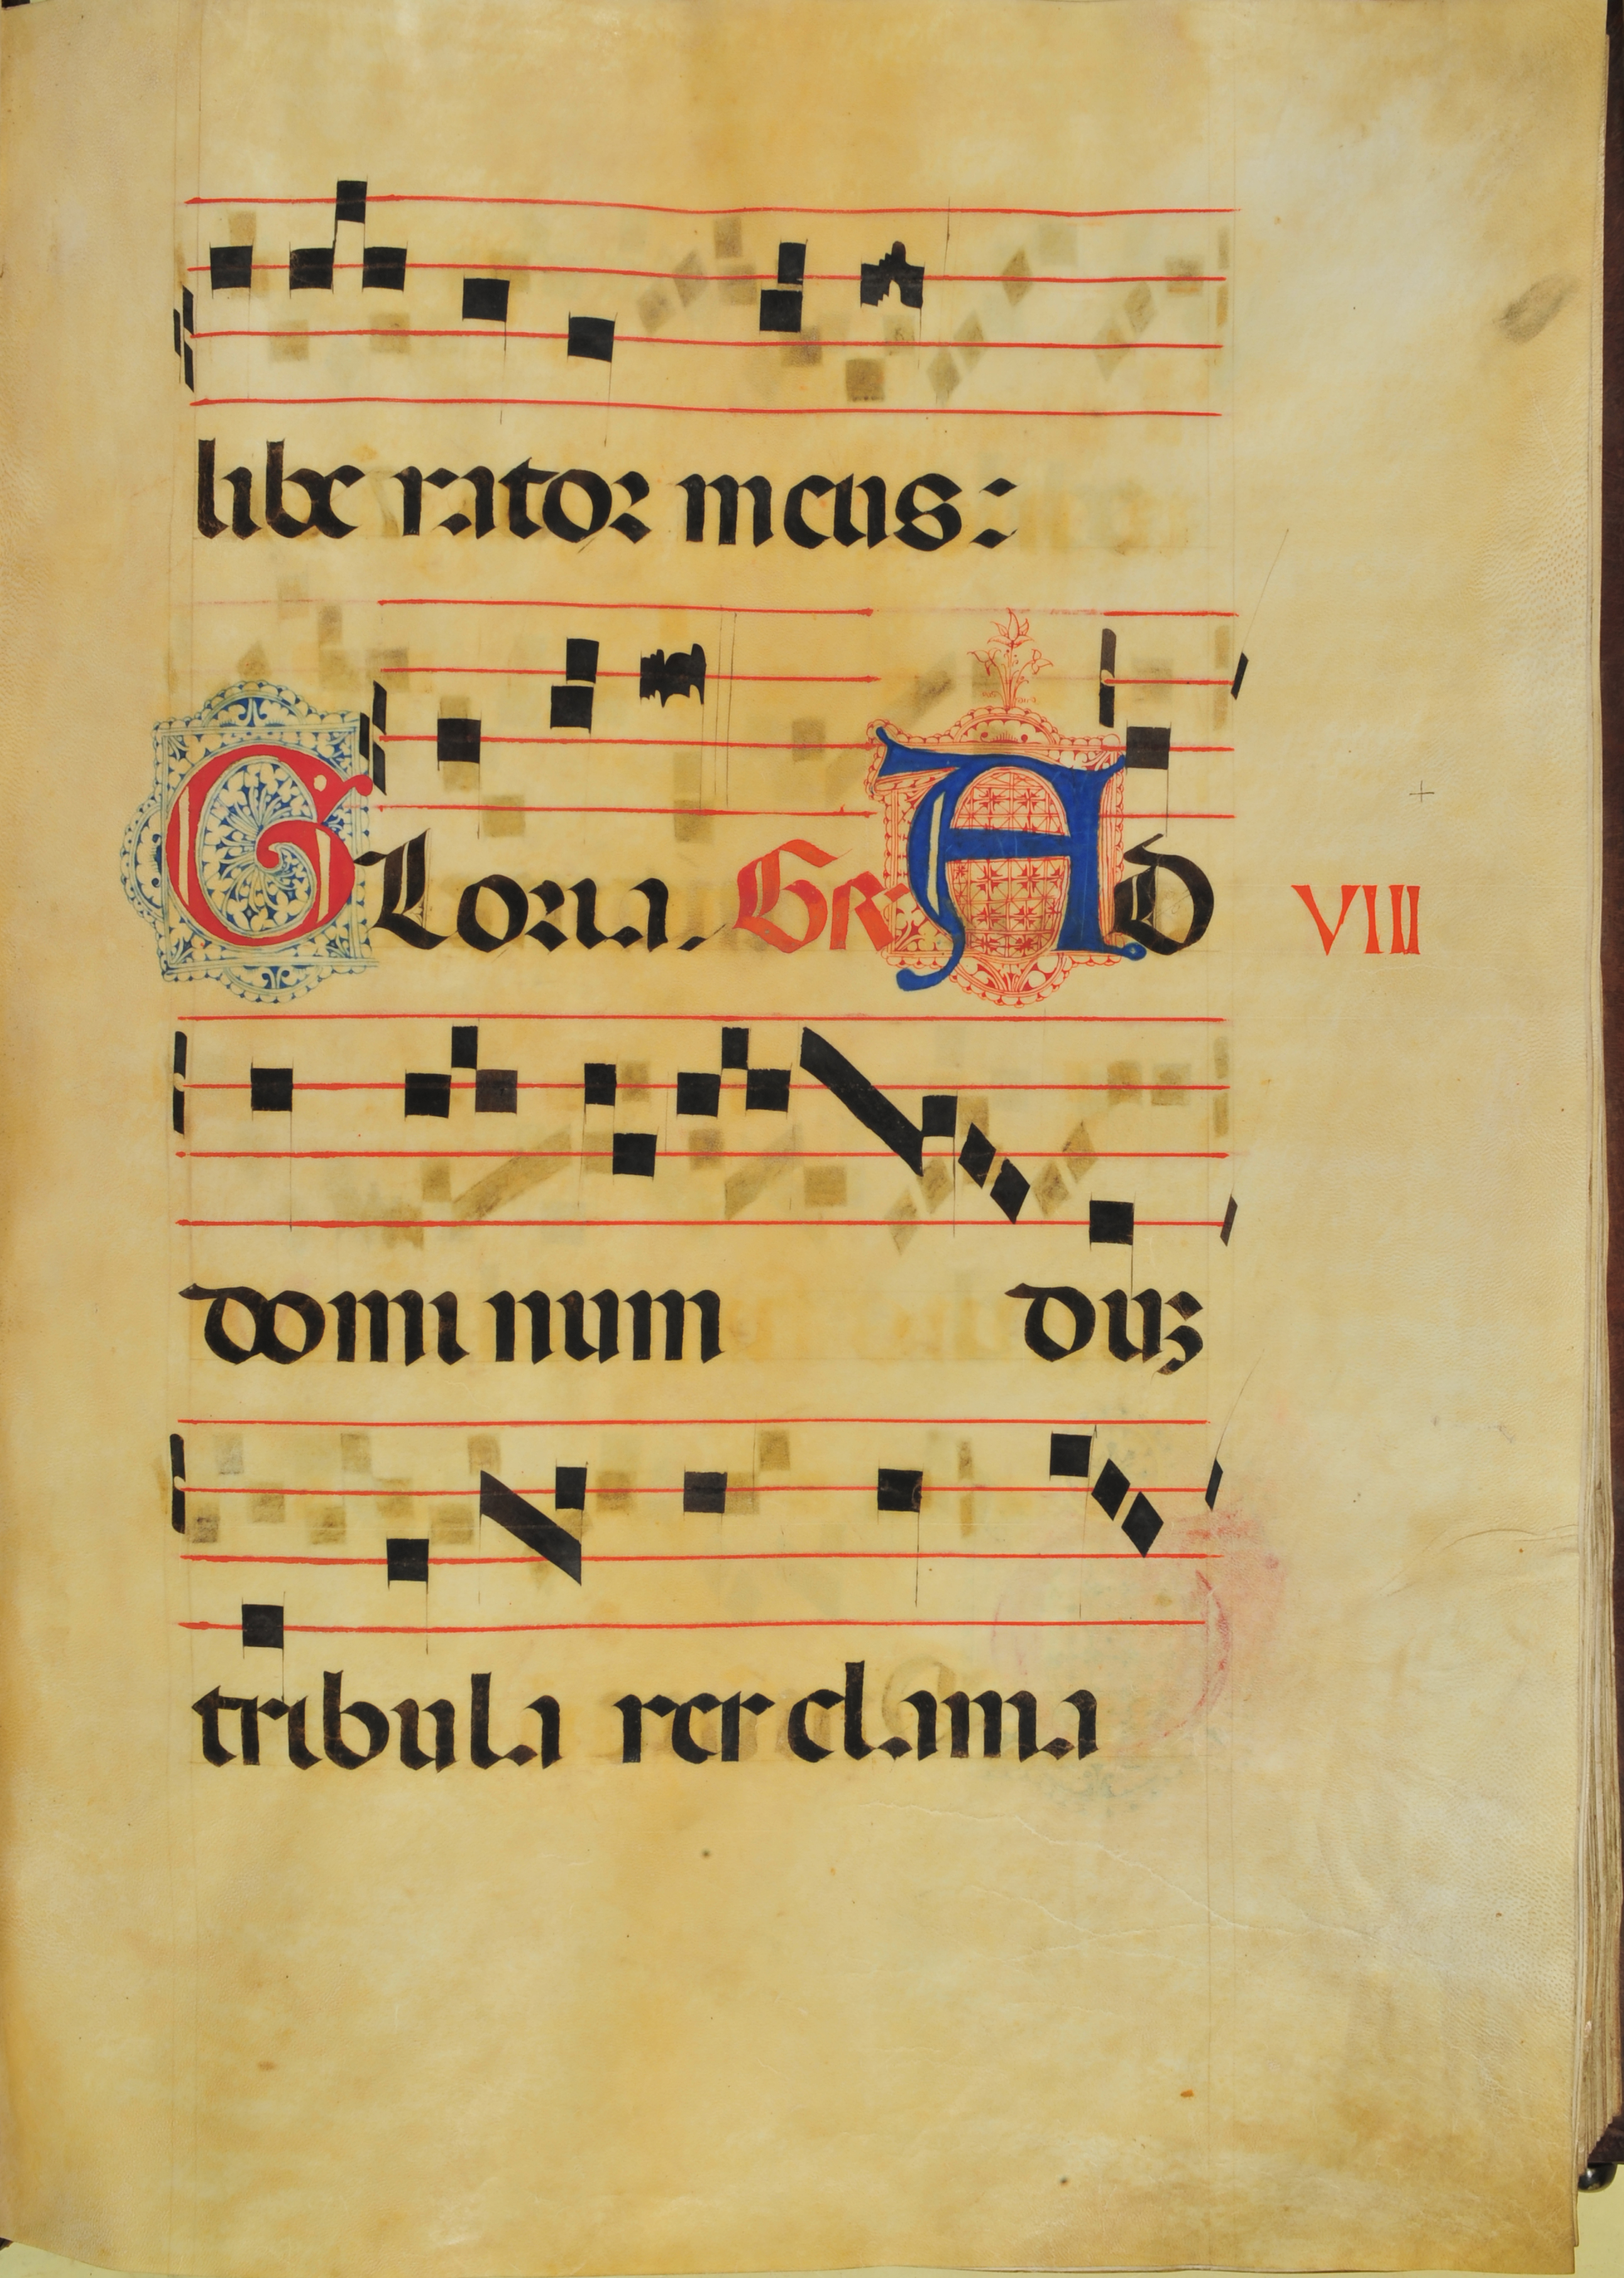 libe rator meus:
GLoria. GR. AD VIII
domi num duz
tribula rer clama